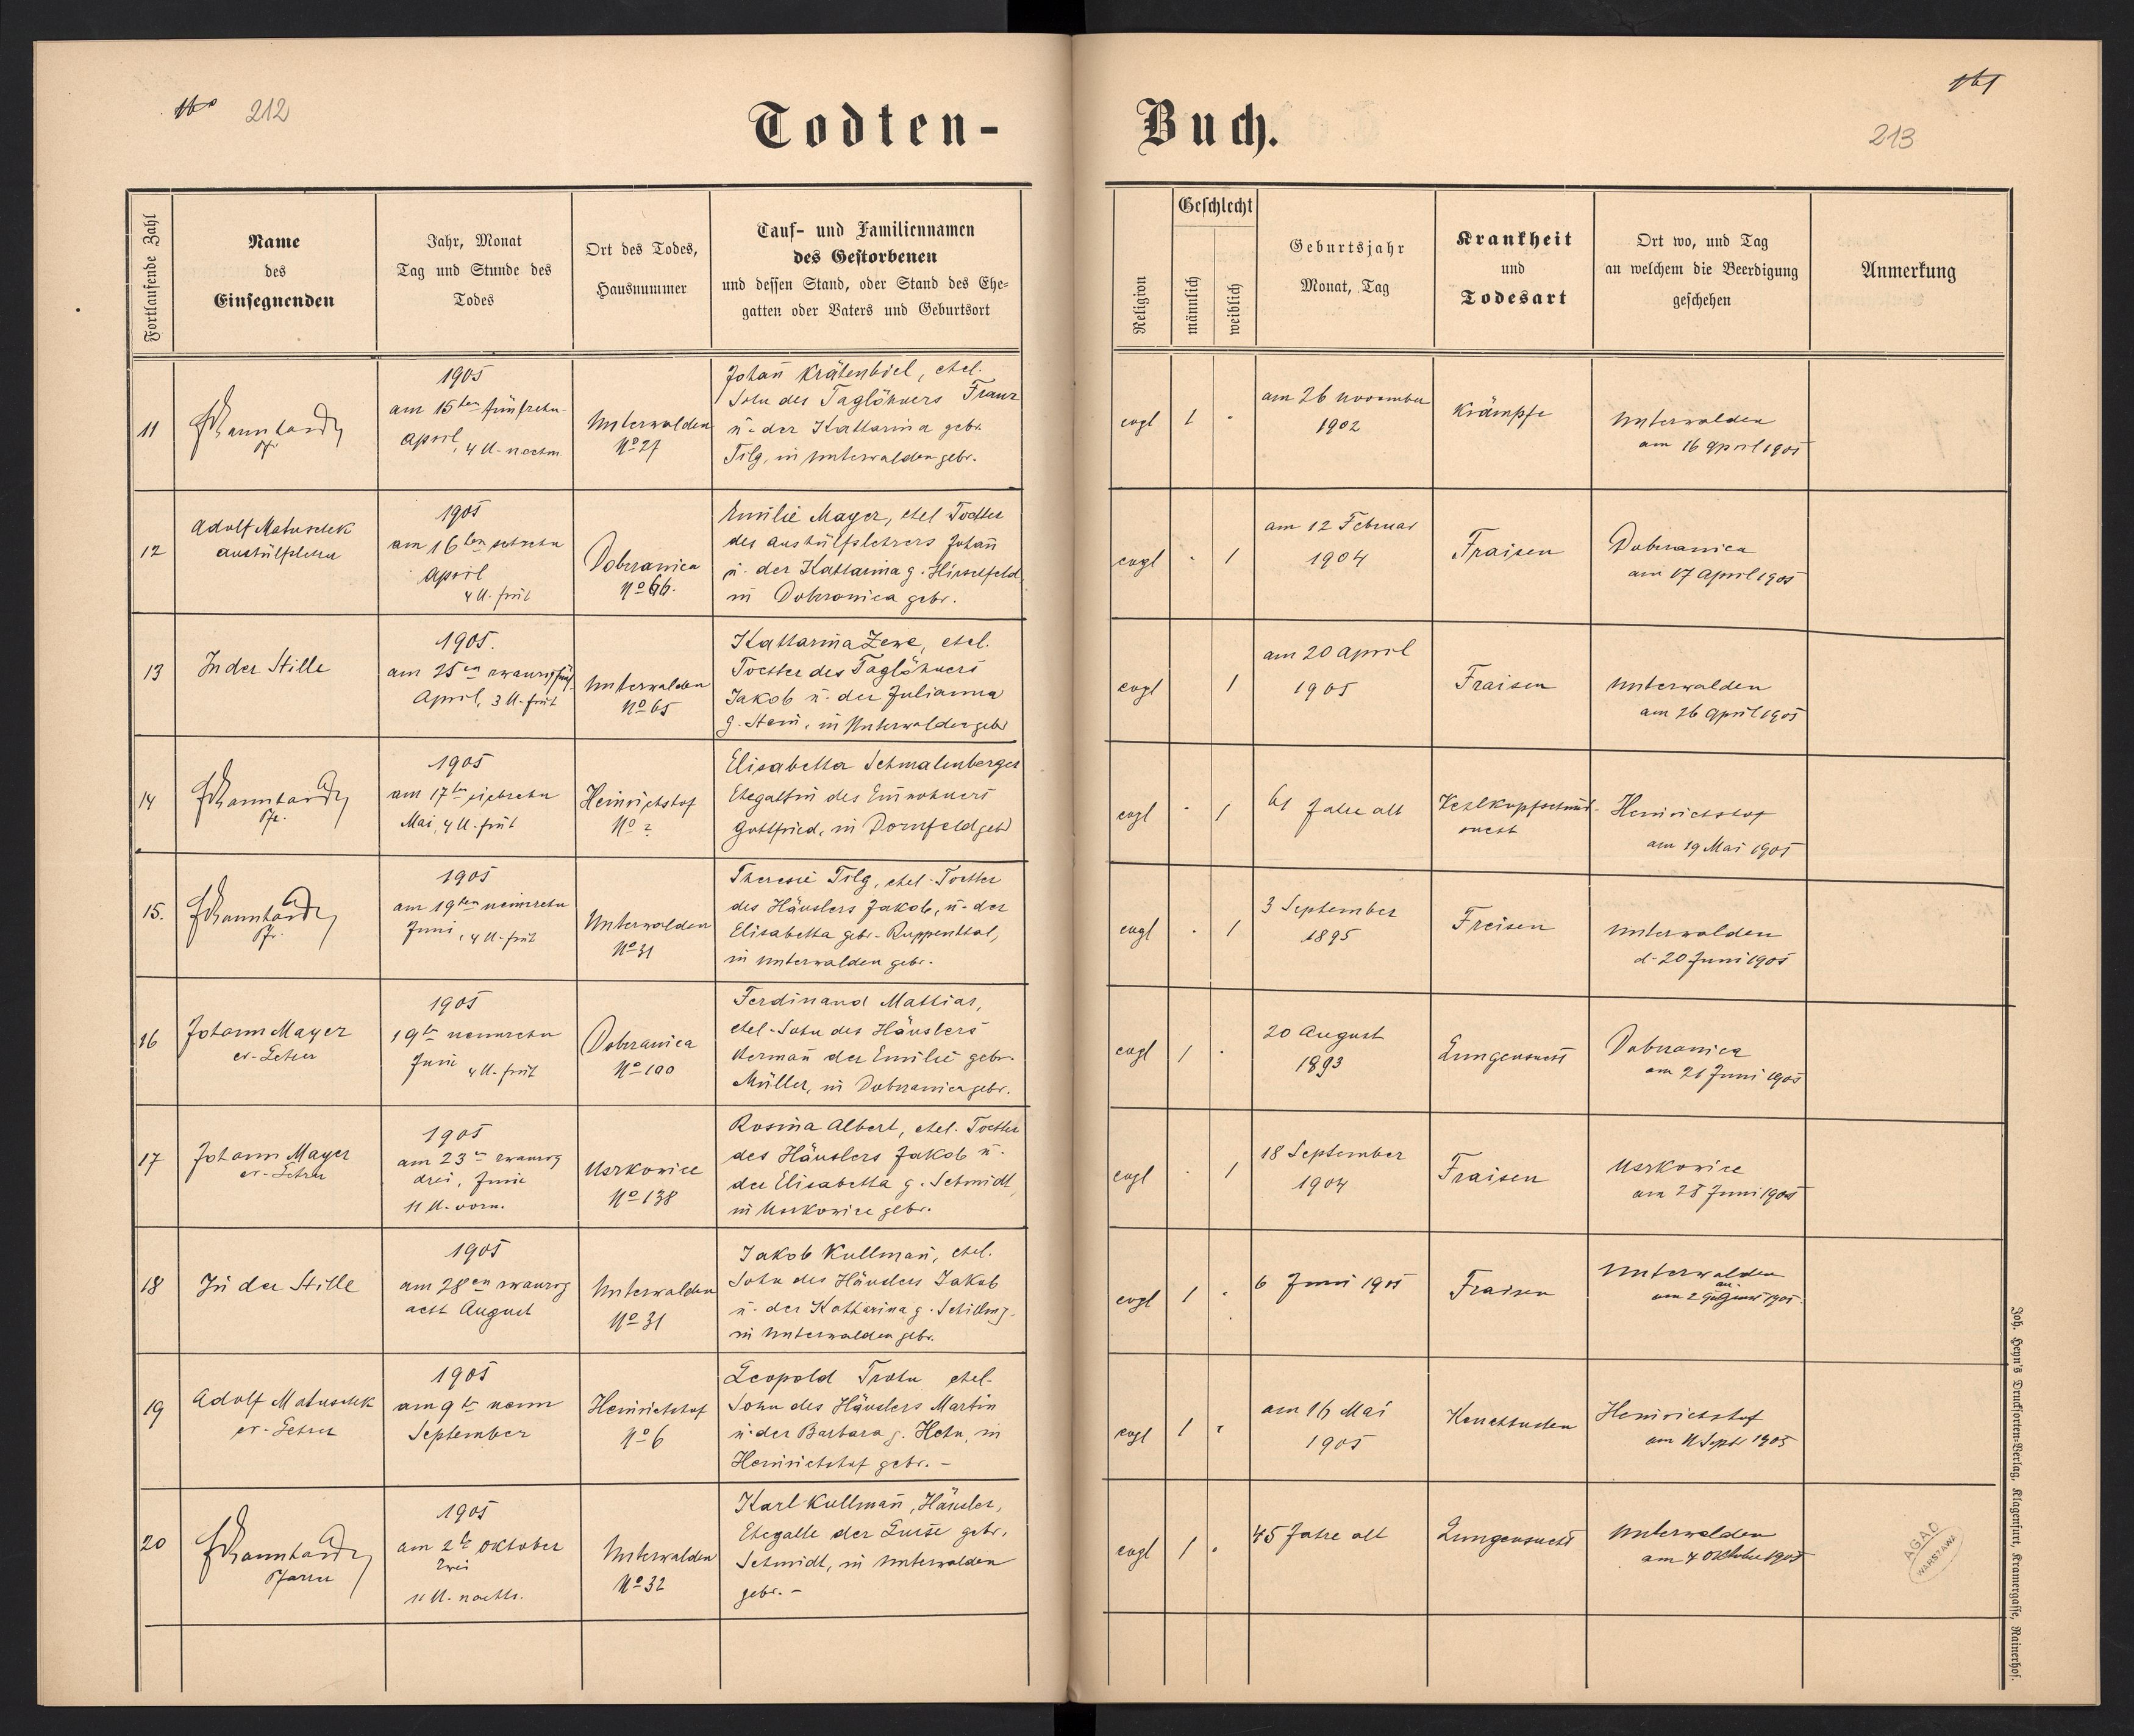 160 212
Todten-
Buch.
161
213
Fortlaufende Zahl
Name
des
Einsegnenden
Jahr, Monat
Tag und Stunde des
Todes
Ort des Todes,
Hausnummer
Tauf- und Familiennamen
des Gestorbenen
und dessen Stand, oder Stand des Ehe-
gatten oder Vaters und Geburtsort
Religion
Geschlecht
männlich
weiblich
Geburtsjahr
Monat, Tag
Krankheit
und
Todesart
Ort wo, und Tag
an welchem die Beerdigung
geschehen
Anmerkung
11
Pfr.
1905
am 15ten fünfzehn
April, 4 U. nachm.
Unterwalden
No 27
Johan̄ Krätenbiel, ehel.
Sohn des Taglöhners Franz
u. der Katharina gebr.
Tilg, in Unterwalden gebr.
evgl
1
am 26 November
1902
Krämpfe
Unterwalden
am 16 April 1905
12
Adolf Matuschek
Aushülfslehrer
1905
am 16ten sechzehn
April
4 U. früh
Dobranica
No 66.
Emilie Mayer, ehel Tochter
des Aushülfslehrers Johan̄
u. der Katharina g. Hirschfeld
in Dobranica gebr.
evgl
1
am 12 Februar
1904
Fraisen
Dobranica
am 17 April 1905
13
In der Stille
1905.
am 25en zwanzigfünf
April, 3 U. früh
Unterwalden
No 65
Katharina Zewe, ehel.
Tochter des Taglöhners
Jakob u. der Julianna
g. Stein, in Unterwalden gebr
evgl
1
am 20 April
1905
Fraisen
Unterwalden
am 26 April 1905
14
Pfr.
1905
am 17ten siebzehn
Mai, 4 U. früh
Heinrichshof
No 2
Elisabetha Schmalenberger
Ehegattin des Einwohners
Gottfried, in Dornfeld gebr
evgl
1
61 Jahre alt
Kehlkopfschwind-
sucht
Heinrichshof
am 19 Mai 1905
15.
Pfr.
1905
am 19ten neunzehn
Juni, 4 U. früh
Unterwalden
No 31
Theresie Tilg, ehel. Tochter
des Häuslers Jakob, u. der
Elisabetha gebr. Ruppenthal,
in Unterwalden gebr.
evgl
1
3 September
1895
Freisen
Unterwalden
d. 20 Juni 1905
16
Johann Mayer
ev. Lehrer
1905
19te neunzehn
Juni 4 U. früh
Dobranica
No 100
Ferdinand Mathias,
ehel. Sohn des Häuslers
Herman̄ der Emilie gebr.
Müller, in Dobranica gebr.
evgl
1
20 August
1893
Lungensucht
Dobranica
am 21 Juni 1905
17
Johann Mayer
ev. Lehrer
1905
am 23en zwanzig
drei, Juni
11 U. vorm.
Uszkowice
No 138
Rosina Albert, ehel. Tochter
des Häuslers Jakob u.
der Elisabetha g. Schmidt,
in Uszkowice gebr.
evgl
1
18 September
1904
Fraisen
Uszkowice
am 25 Juni 1905
18
In der Stille
1905
am 28en zwanzig
acht August
Unterwalden
No 31
Jakob Kullman̄, ehel.
Sohn des Häuslers Jakob
u. der Katharina g. Schilling.
in Unterwalden gebr.
evgl
1
6 Juni 1905
Fraisen
Unterwalden
am 29 August 1905.
19
Adolf Matuschek
ev. Lehrer
1905
am 9te neun
September
Heinrichshof
No 6
Leopold Trohn ehel.
Sohn des Häuslers Martin
u. der Barbara g. Hehn, in
Heinrichshof gebr. -
evgl
1
am 16 Mai
1905
Keuchhusten
Heinrichshof
am 11 Septr 1905
20
Pfarrer
1905
am 2te Oktober
zwei
11 U. nachts.
Unterwalden
No 32
Karl Kullman̄, Häusler,
Ehegatte der Luise gebr.
Schmidt, in Unterwalden
gebr. -
evgl
1
45 Jahre alt
Lungensucht
Unterwalden
am 4 Oktober 1905
AGAD
WARSZAWA
Joh. Heyn's Drucksorten-Verlag, Klagenfurt, Kramergasse, Rainerhof.